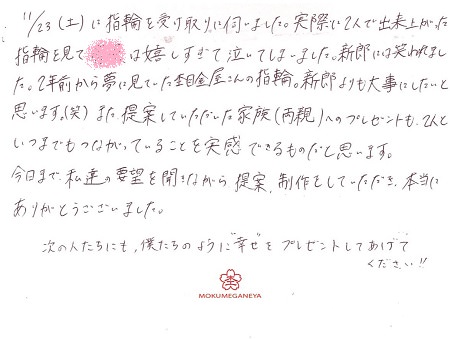 11/23(土)に指輪を受け取りに伺いました。実際に2人で出来上がった
指輪を見て は嬉しすぎて泣いてしまいました。新郎には笑われまし
た。2年前から夢に見ていた杢目金屋さんの指輪。新郎よりも大事にしたいと
思います。(笑) また、提案していただいた家族(両親)へのプレゼントも、2人と
いつまでもつながっていることを実感できるものだと思います。
今日まで、私達の要望を聞きながら提案、制作をしていただき、本当に
ありがとうございました。
次の人たちにも、僕たちのように"幸せ"をプレゼントしてあげて
ください!!
MOKUMEGANEYA